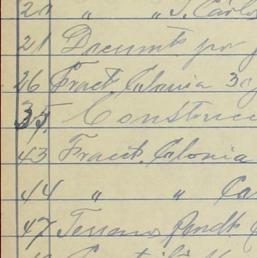 20 " " S. Carlo
21 Documts por
26 Fracct. Colonia 3
35. Construcc
43 Fracct. Colonia
44 " " Ca
47 Terrenos Pendte